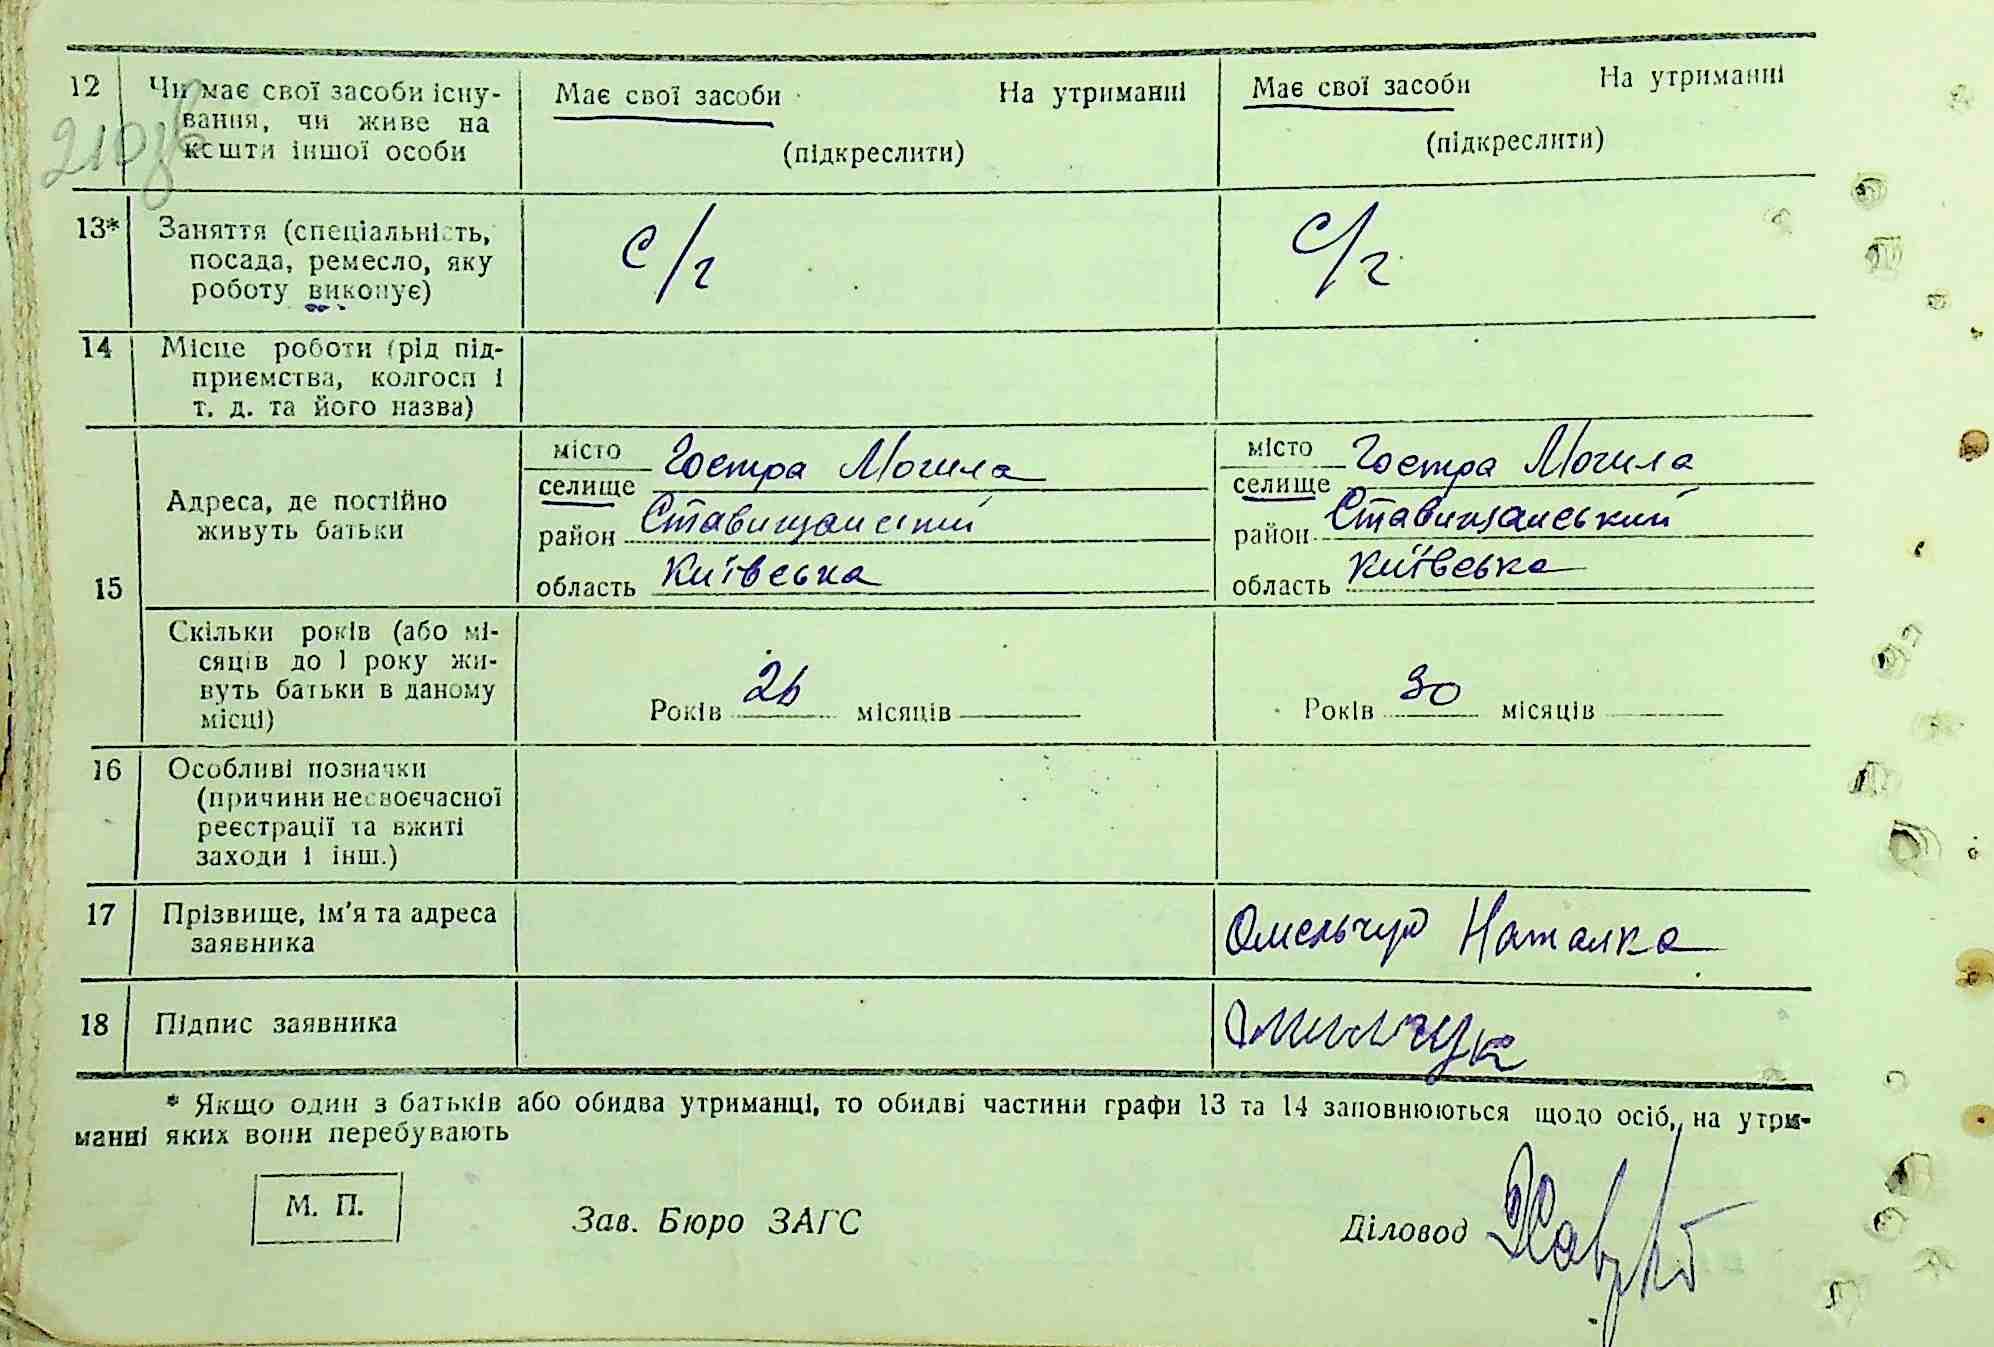 12 Чи має свої засоби існу- Має свої засоби На утриманні Має свої засоби На утриманні
210зв вання, чи живе на
кошти іншої особи (підкреслити) (підкреслити)
13* Заняття (спеціальність, с/г с/г
посада, ремесло, яку
роботу виконує)
14 Місце роботи (рід під-
приємства, колгосп і
т. д. та його назва)
15
Адреса, де постійно
живуть батьки
місто Гостра Могила місто Гостра Могила
селище селище
район Ставищанський район Ставищанський
область Київська область Київська
Скільки років (або мі-
сяців до 1 року жи-
вуть батьки в даному
місці)
Років 26 місяців Років 30 місяців
16 Особливі позначки
(причини несвоєчасної
реєстрації та вжиті
заходи і інш.)
17 Прізвище, ім'я та адреса Омельчук Наталка
заявника
18 Підпис заявника Омилчук
* Якщо один з батьків або обидва утриманці, то обидві частини графи 13 та 14 заповнюються щодо осіб, на утри-
манні яких вони перебувають
М. П. Зав. Бюро ЗАГС Діловод